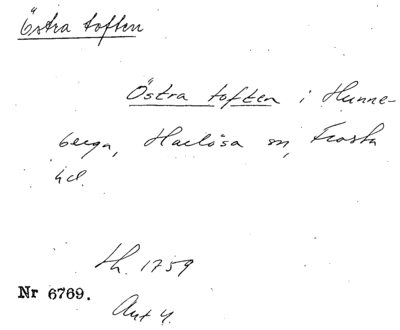 Östra toften
Östra toften i Hunne-
berga, Harlösa sn, Frosta
hd.
Lh. 1759
Nr 6769.
Ant 4.